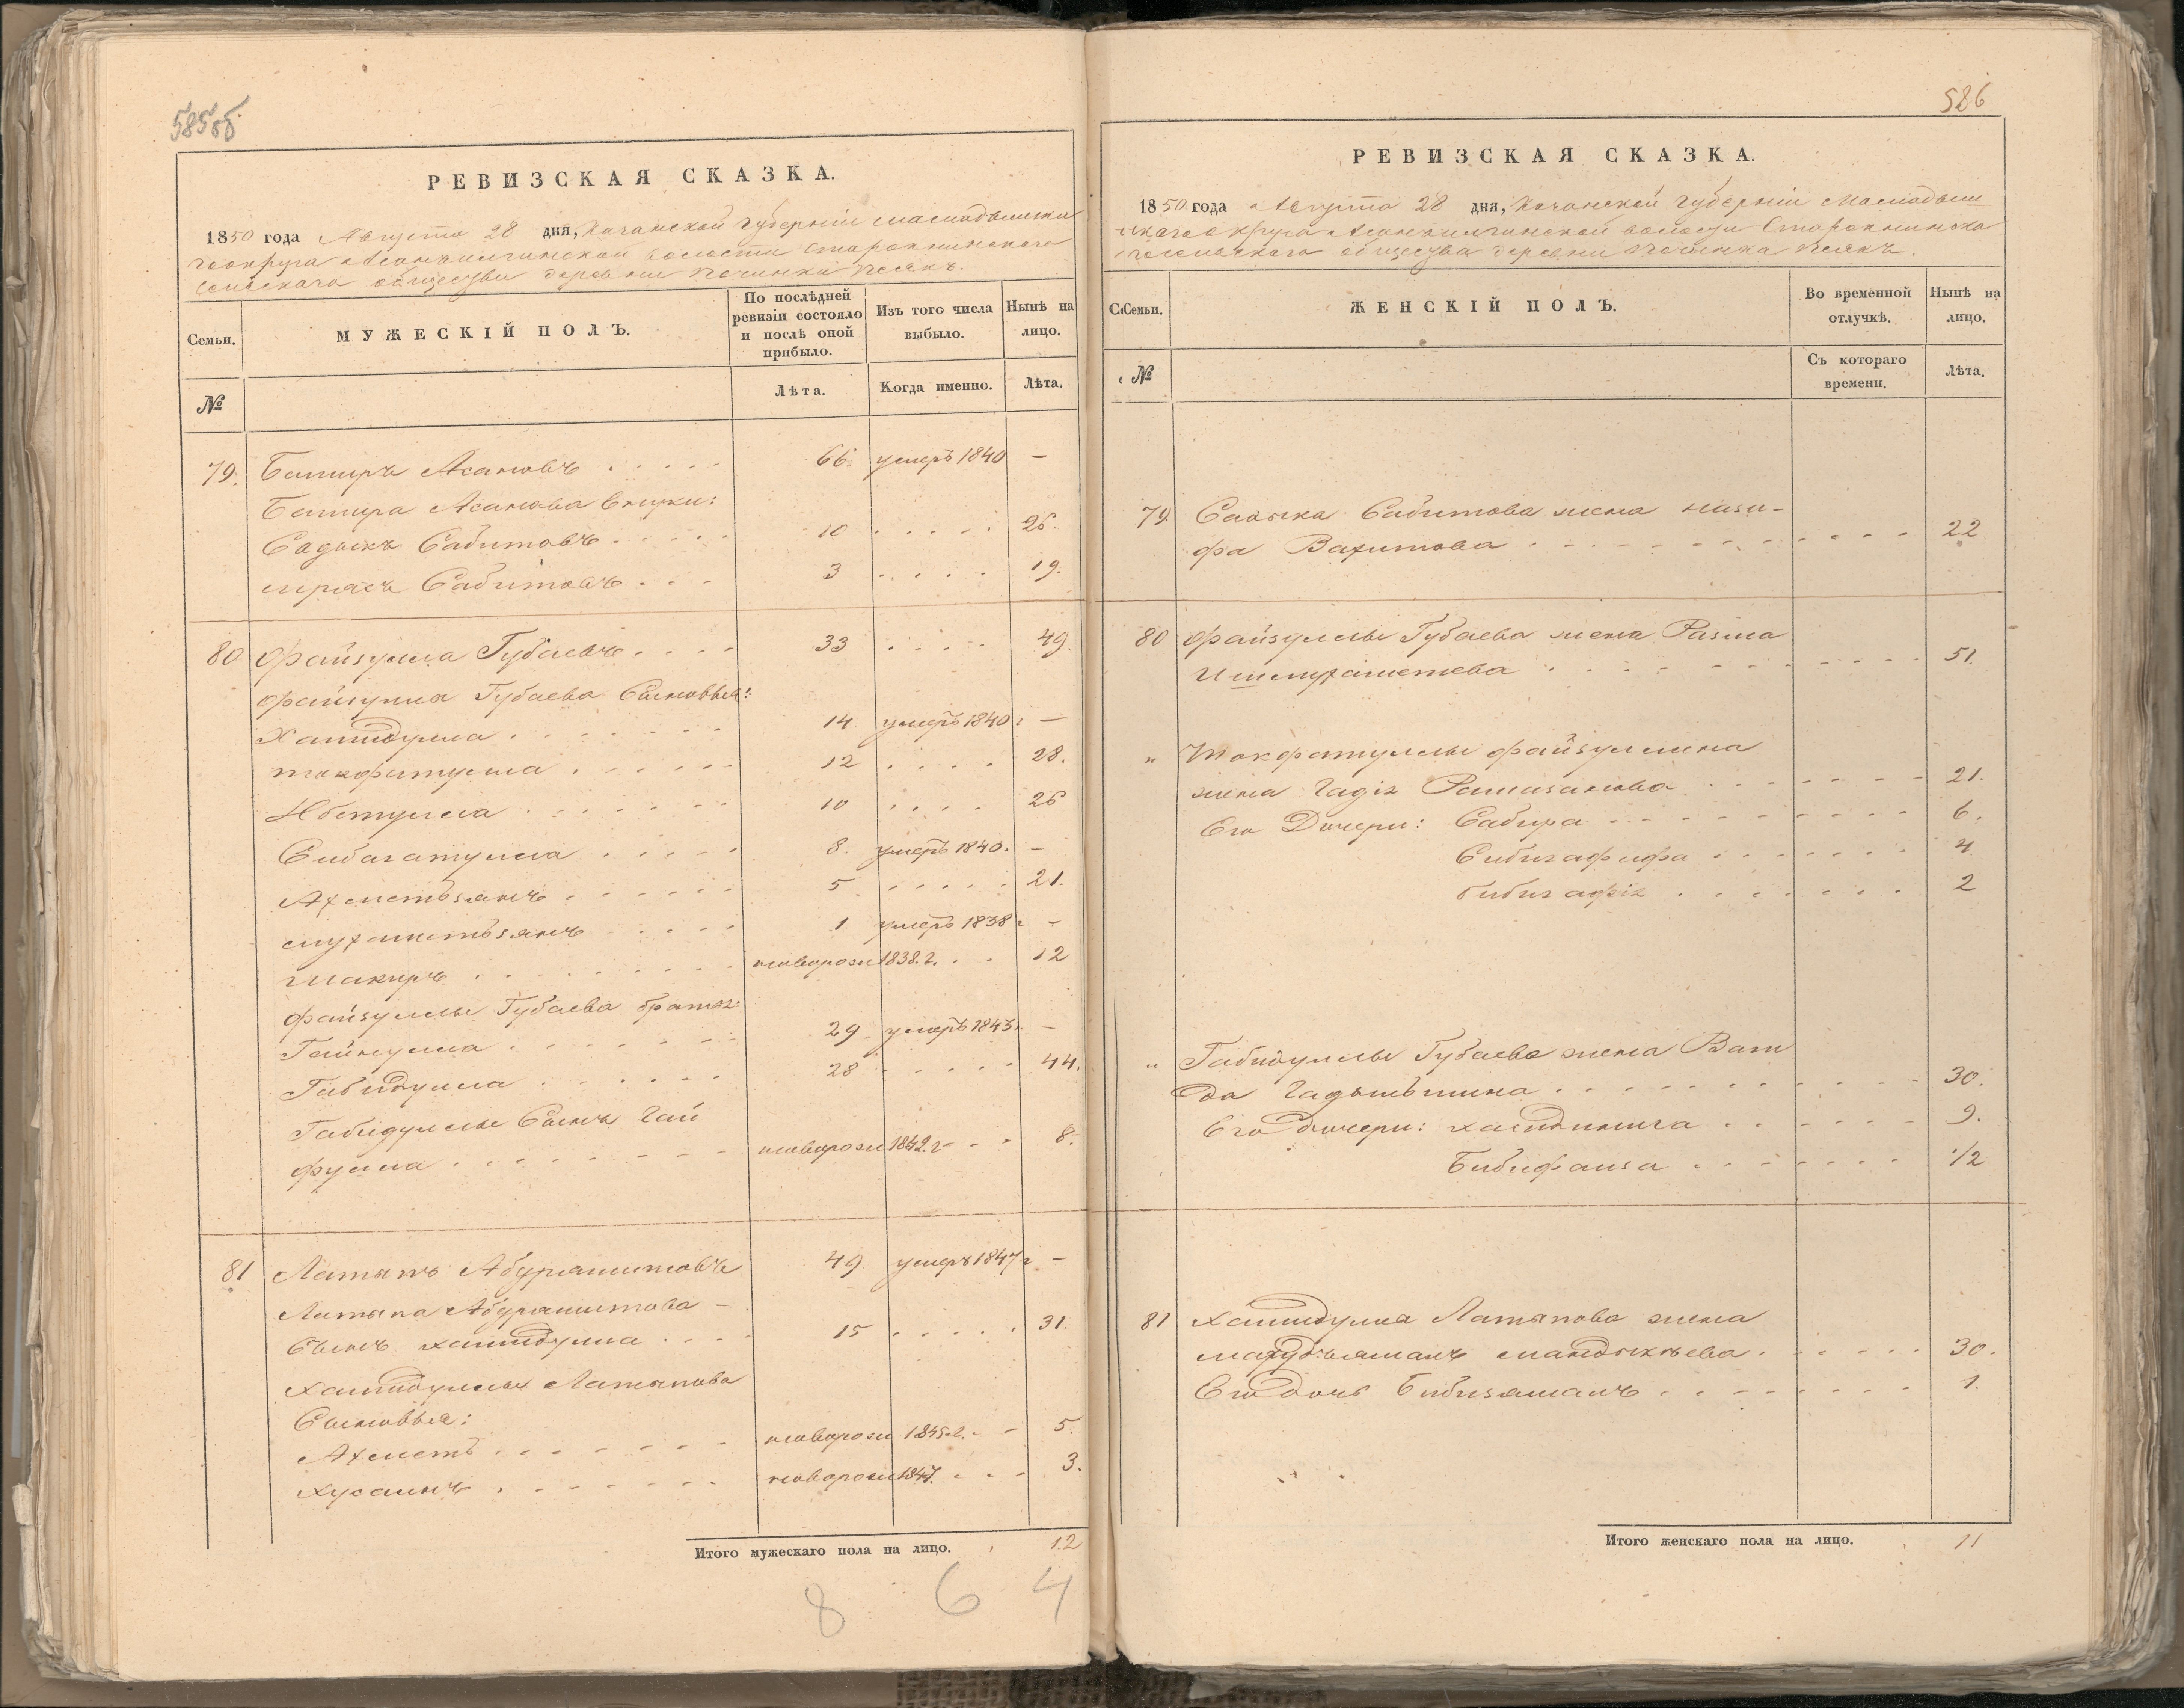 585об.
РЕВИЗСКАЯ СКАЗКА.
1850 года Августа 28 дня, Казанской Губерніи Мамадышска
го округа Асанъилгинской волости Старокнинскаго
Сельскаго общества деревни Починки Пеякъ.
Семьи.
МУЖЕСКІЙ ПОЛЪ.
По послѣдней ревизіи состояло и послѣ оной прибыло.
Изъ того числа выбыло.
Нынѣ на лицо.
№
Лѣта.
Когда именно.
Лѣта.
79. Баширъ Асановъ 66. умеръ 1840 —
Башира Асанова Внуки:
Садыкъ Сабитовъ 10 26.
Сабитовъ 3 19.
80 Файзулла Губаевъ 33 49.
Файзулла Губаева Сыновья:
Хамидулла 14 умеръ 1840 г —
Токфатулла 12 28.
Ибетулла 10 26
Сибагатулла 8. умеръ 1840. —
Ахметзянъ 5 21.
Мухаметзянъ 1 умеръ 1838 г —
Шакиръ новорож 1838. г. 12
Файзуллы Губаева братья:
Гайнулла 29 умеръ 1843 г. —
Габидулла 28 44.
Габидуллы Сынъ Гай
фулла новорож 1842. г 8.
81 Латыпъ Абдрашитовъ 49. умеръ 1847 г —
Латыпа Абдрашитова —
Сынъ Хамидулла 15 31.
Хамидуллы Латыпова
Сыновья:
Ахметъ новорож 1845. г. 5.
Хусаинъ новорож 1847. 3.
Итого мужескаго пола на лицо. 12
8 6 4
586
РЕВИЗСКАЯ СКАЗКА.
1850 года Августа 28 дня, Казанской Губерніи Мамадыш
скаго округа Асанъилгинской волости Старокнинска
го Сельскаго общества деревни Починка Пеякъ.
Семьи.
ЖЕНСКІЙ ПОЛЪ.
Во временной отлучкѣ.
Нынѣ на лицо.
№
Съ котораго времени.
Лѣта.
79 Садыка Сабитова жена Нази-
фа Вахитова 22
80 Файзуллы Губаева жена Разма
Ишмухаметева 51.
" Токфатуллы Файзуллина
жена Гадія Рамазанова 21.
Его Дочери: Сабира 6.
Бибигафифа 4.
Бибигафія 2
" Габидуллы Губаева жена Ваги
да Гадыльшина 30.
Его дочери: Хасидикиша 9.
Бибифаиза 1/2
81 Хамидулла Латыпова жена
Мандыкѣева 30.
Его дочь Бибизямалъ 1.
Итого женскаго пола на лицо. 11